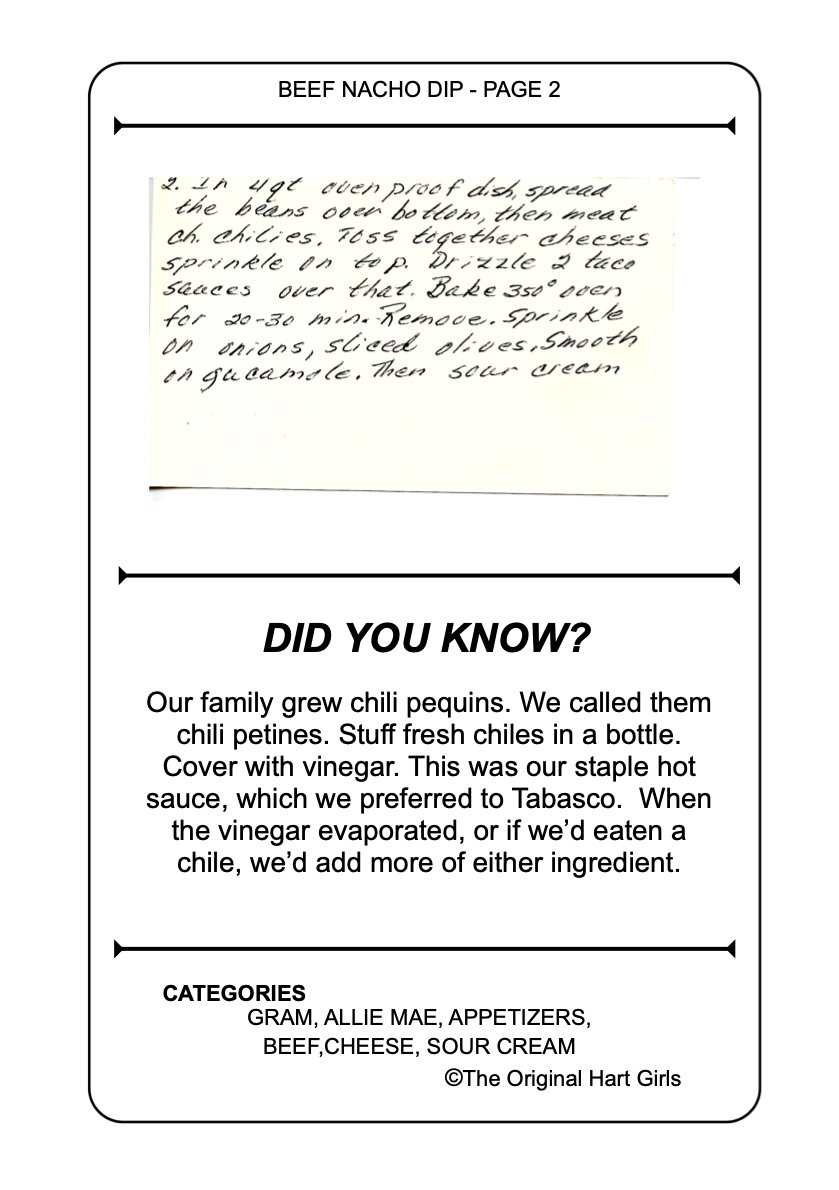 BEEF NACHO DIP - PAGE 2
2. In 4qt ovenproof dish, spread
the beans over bottom, then meat
ch. chilies. Toss together cheeses
sprinkle on top. Drizzle 2 taco
sauces over that. Bake 350° oven
for 20-30 min. Remove. Sprinkle
on onions, sliced olives. Smooth
on gucamole. Then sour cream
DID YOU KNOW?
Our family grew chili pequins. We called them
chili petines. Stuff fresh chiles in a bottle.
Cover with vinegar. This was our staple hot
sauce, which we preferred to Tabasco.  When
the vinegar evaporated, or if we’d eaten a
chile, we’d add more of either ingredient.
CATEGORIES
GRAM, ALLIE MAE, APPETIZERS,
BEEF,CHEESE, SOUR CREAM
©The Original Hart Girls